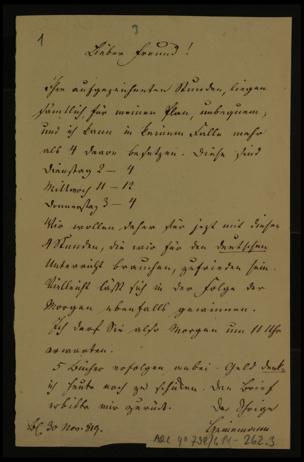 1
3
Lieber Freund!
Ihre aufgezeichneten Stunden, liegen
sämtlich, für meinen Plan, unbequem,
und ich kann in keinem Falle mehr
als 4 davon besetzen. Diese sind
Dienstag 2 – 4
Mittwoch 11 – 12
Donnerstag 3 – 4
Wir wollen daher für jetzt mit diesen
4 Stunden, die wir für den deutschen
Unterricht brauchen, zufrieden sein.
Vielleicht läßt sich in der Folge der
Morgen ebenfalls gewinnen.
Ich darf Sie also Morgen um 11 Uhr
erwarten.
5 Bücher erfolgen anbei. Geld denke
ich heute noch zu schicken. Den Brief
erbitte mir zurück. Der Ihrige
30 Nov. 819.